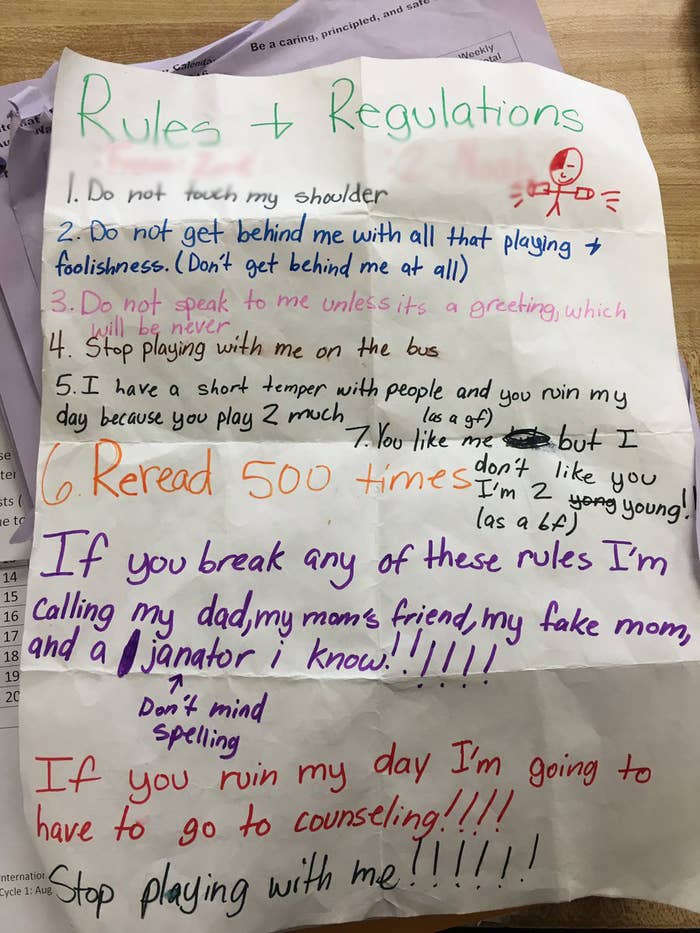 Be a caring, principled, and safe
Weekly
Calenda
Rules + Regulations
1. Do not touch my shoulder
2. Do not get behind me with all that playing +
foolishness. (Don't get behind me at all)
3. Do not speak to me unless its a greeting, which
will be never
4. Stop playing with me on the bus
5. I have a short temper with people and you ruin my
day because you play 2 much
6. Reread 500 times
(as a gf)
7. You like me but I
don't like you
I'm 2 yong young!
(as a bf)
If you break any of these rules I'm
calling my dad, my mom's friend, my fake mom,
and a janator i know!!!!!!!
Don't mind
spelling
If you ruin my day I'm going to
have to go to counseling!!!!
Stop playing with me!!!!!!!
14
15
16
17
18
19
20
Cycle 1: Aug